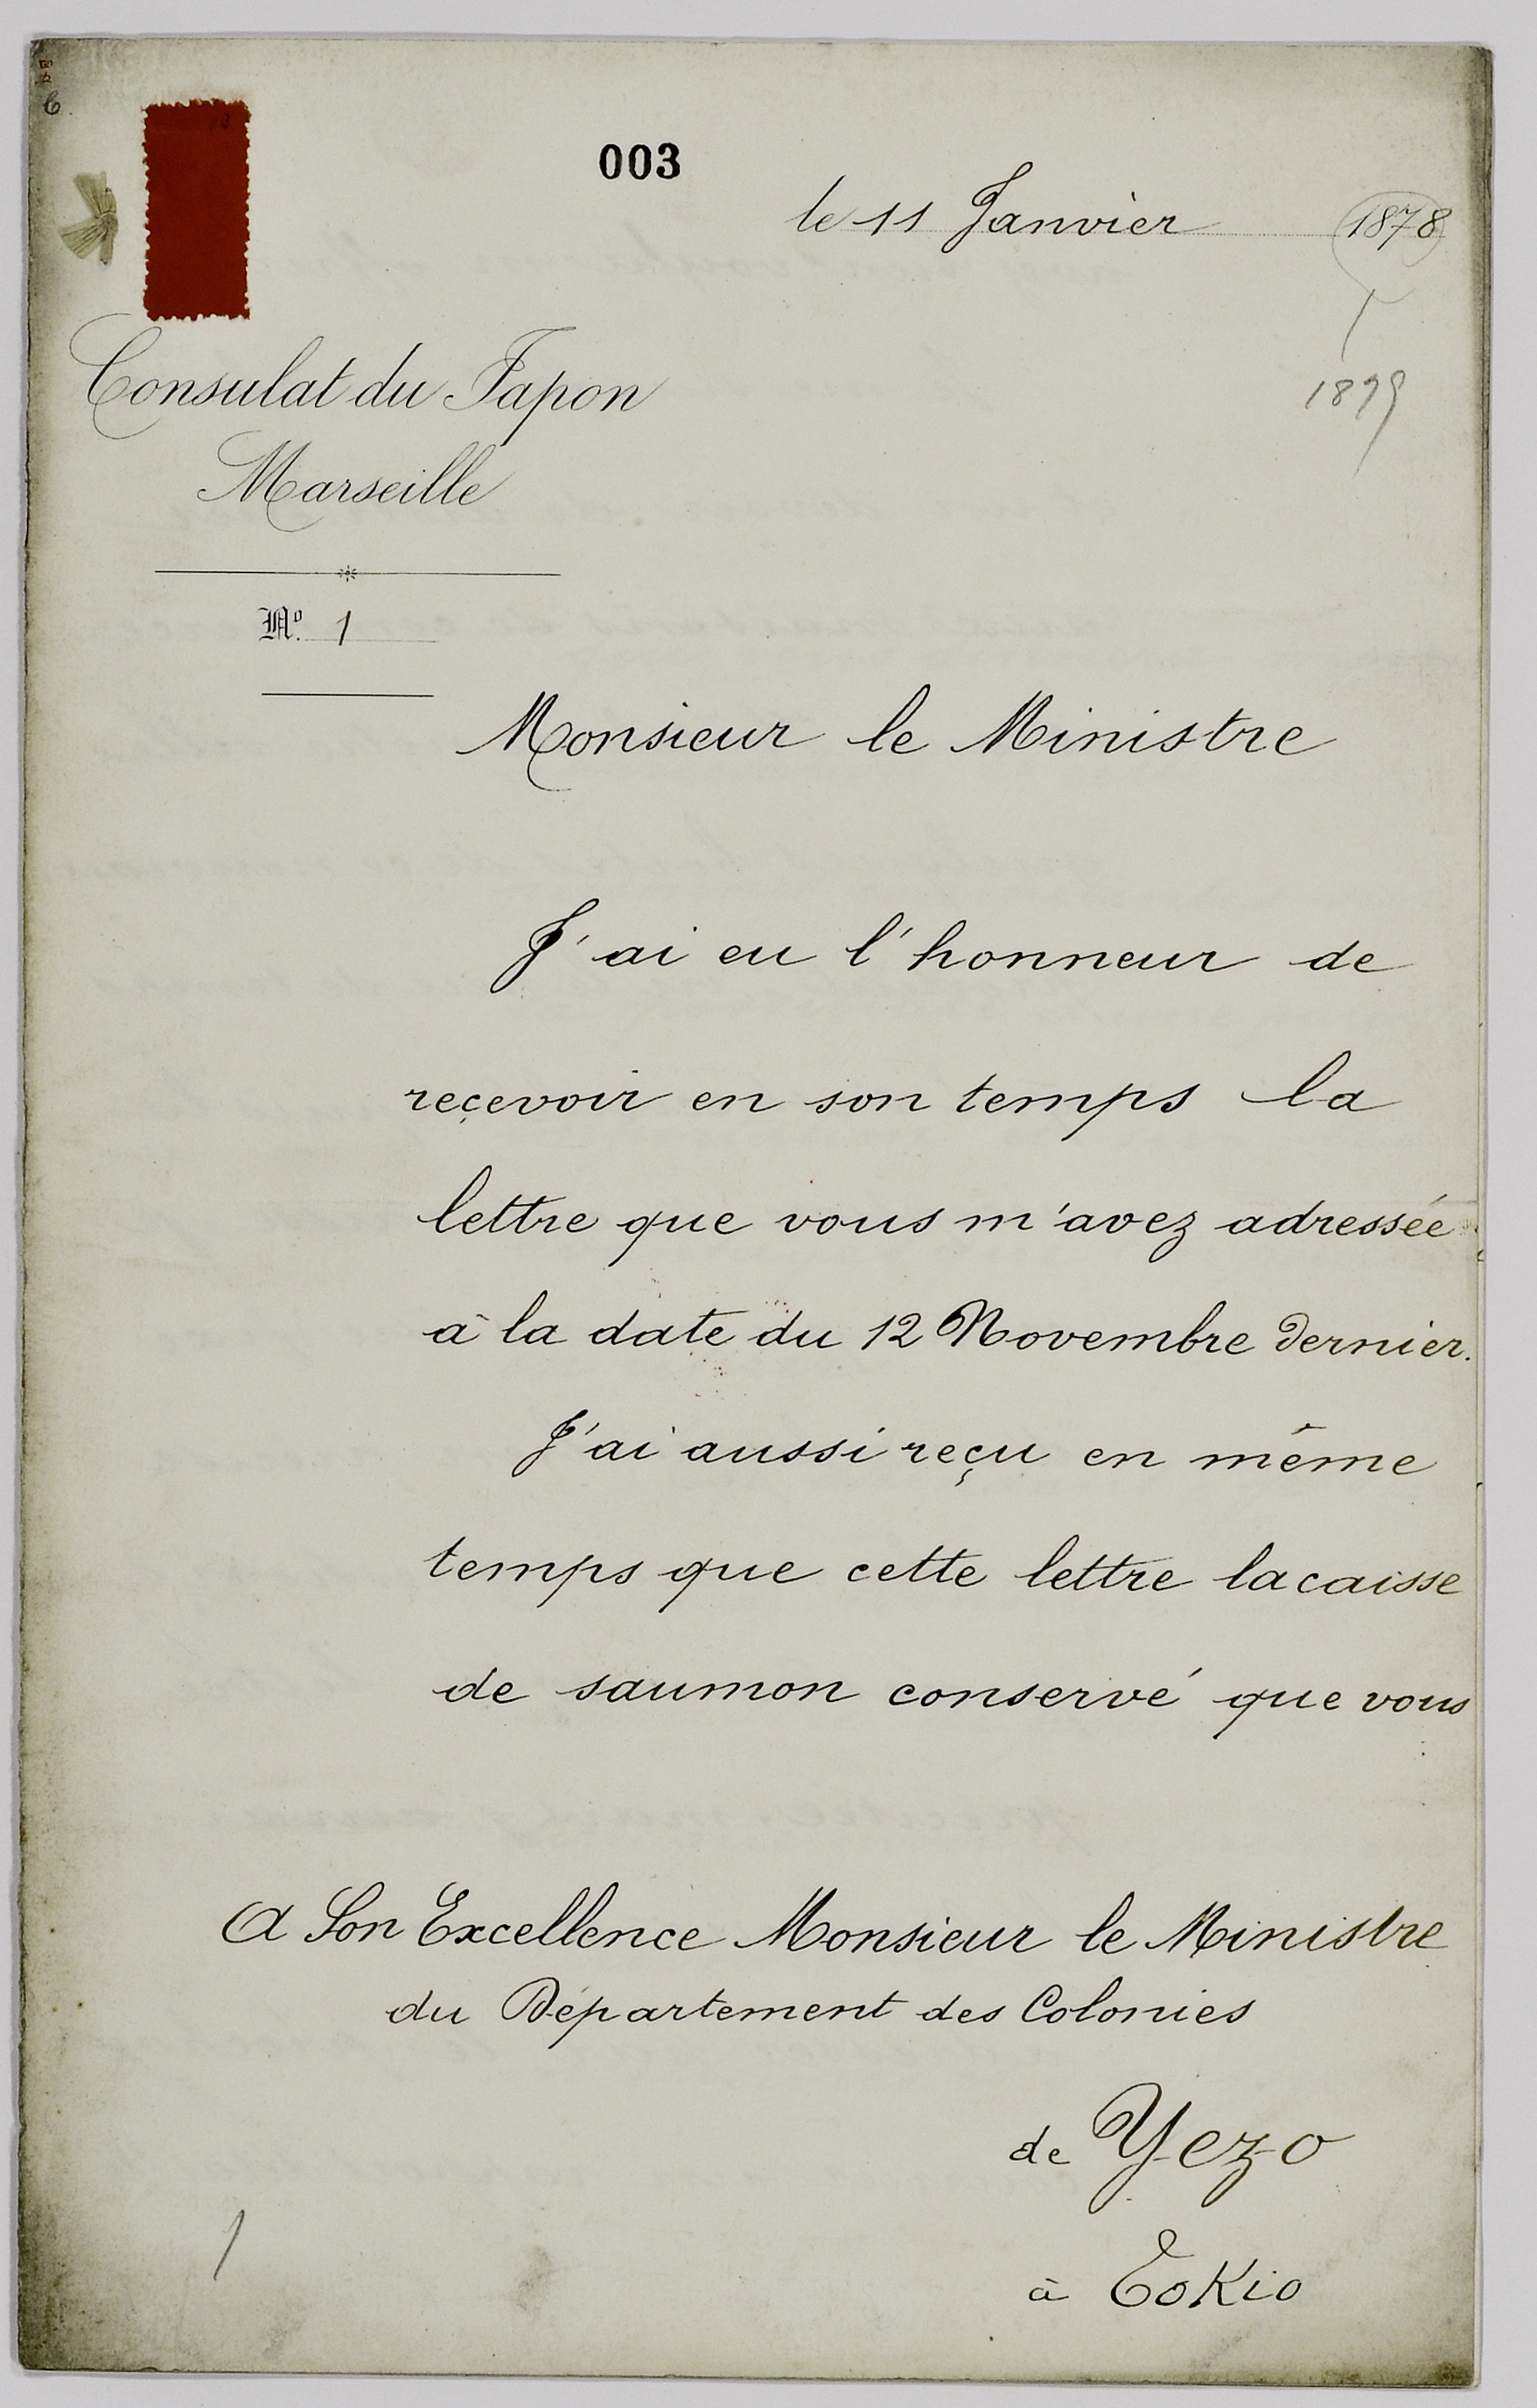 003
le 11 Janvier 1878
1879
Consulat du Japon
Marseille
Nº. 1
Monsieur le Ministre
J'ai eu l'honneur de
reçevoir en son temps la
lettre que vous m'avez adressée
à la date du 12 Novembre dernier.
J'ai aussi reçu en même
temps que cette lettre la caisse
de saumon conservé que vous
A Son Excellence Monsieur le Ministre
du Département des Colonies
de Yezo
à Tokio
1